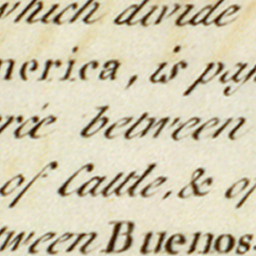 which divide
merica, is pas
rce between
of Cattle, & of
tween Buenos-